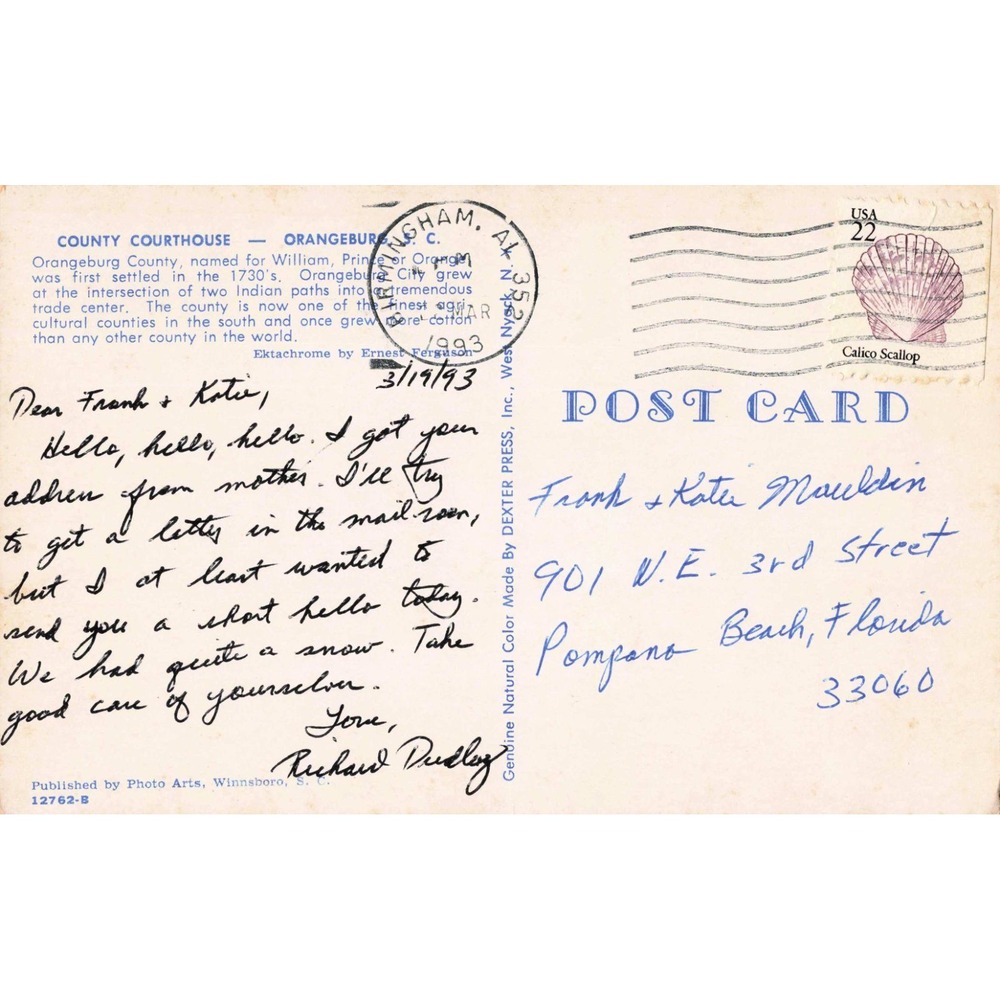 COUNTY COURTHOUSE — ORANGEBURG, S. C.
Orangeburg County, named for William, Prince of Orange
was first settled in the 1730's. Orangeburg City grew
at the intersection of two Indian paths into a tremendous
trade center. The county is now one of the finest agri-
cultural counties in the south and once grew more cotton
than any other county in the world.
Ektachrome by Ernest Ferguson
3/19/93
Dear Frank & Katie,
Hello, hello, hello. I got your
address from mother. I'll try
to get a letter in the mail soon,
but I at least wanted to
send you a short hello today.
We had quite a snow. Take
good care of yourselves.
Love,
Richard Dudley
Published by Photo Arts, Winnsboro, S. C.
12762-B
Genuine Natural Color Made By DEXTER PRESS, Inc., West Nyack, N. Y.
BIRMINGHAM, AL 352
PM
MAR
1993
USA
22
Calico Scallop
POST CARD
Frank & Katie Mauldin
901 N.E. 3rd Street
Pompano Beach, Florida
33060